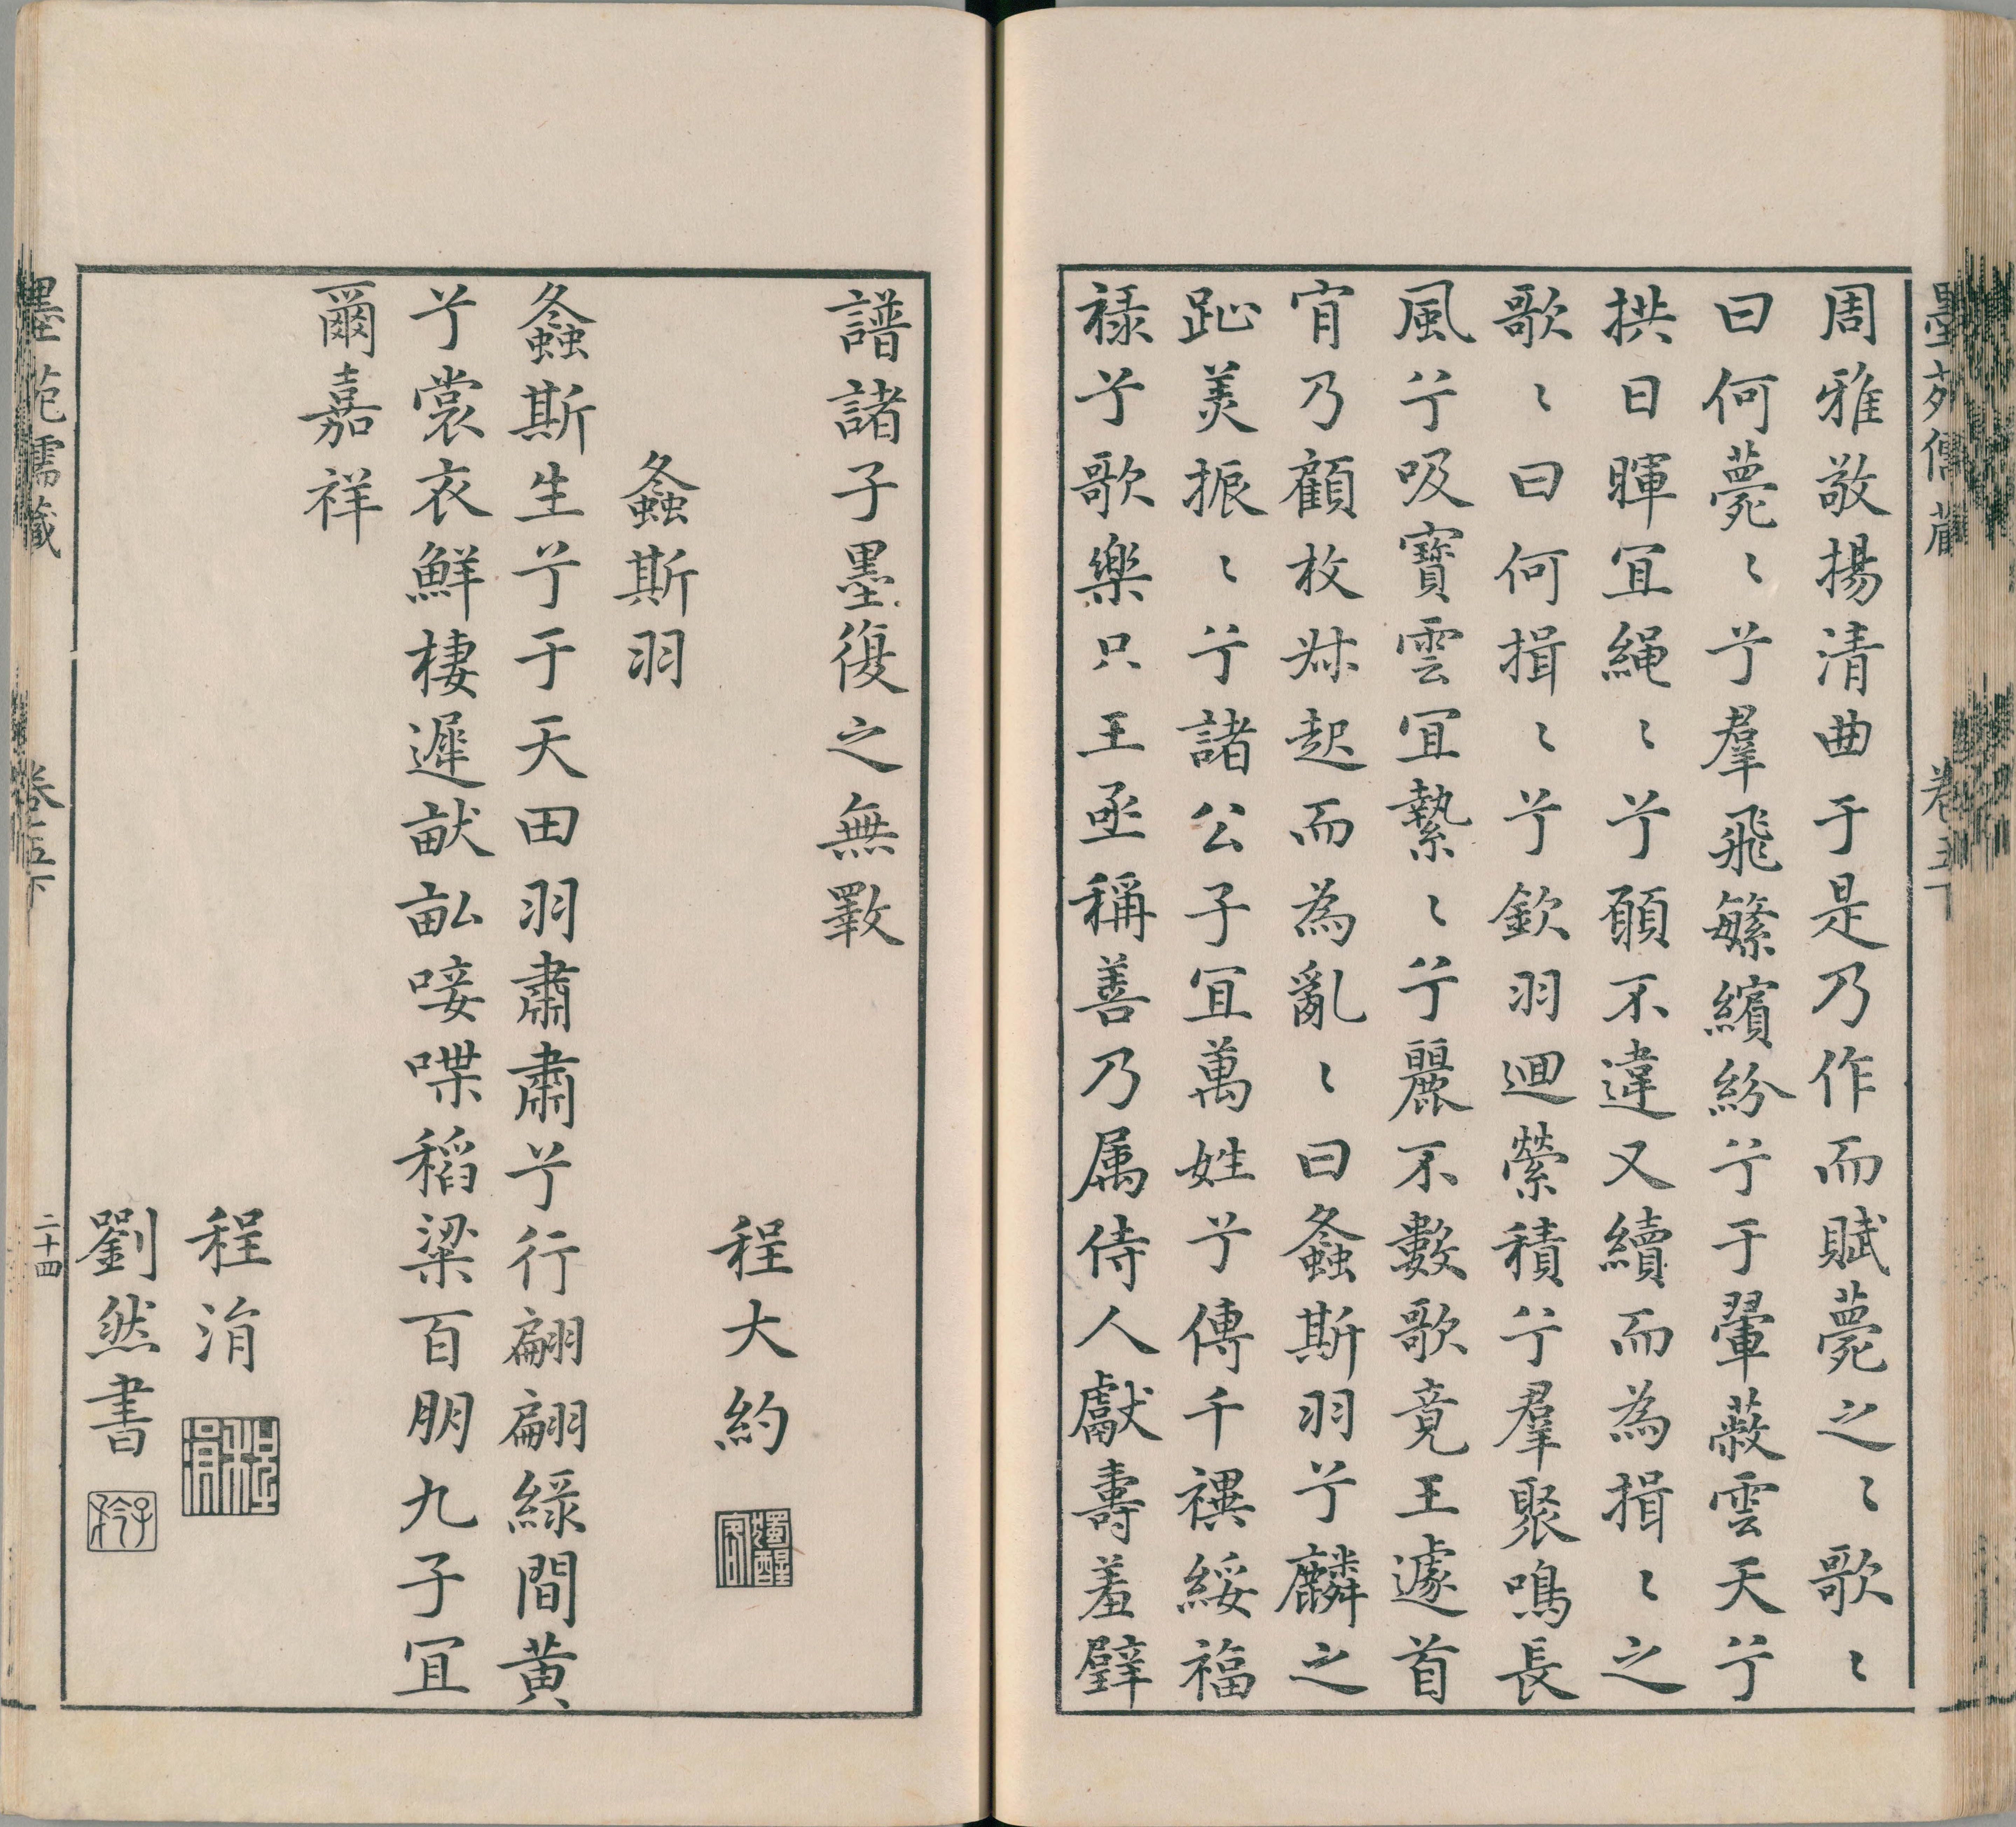 周雅敬揚清曲于是乃作而賦薨之〻歌〻
曰何薨〻兮羣飛繁繽紛兮于翬蔽雲天兮
拱日暉宜繩〻兮願不違又續而為揖〻之
歌〻曰何揖〻兮歛羽迴縈積兮羣聚鳴長
風兮吸寶雲宜縶〻兮麗不數歌竟王遽首
肯乃顧枚叔起而為亂〻曰螽斯羽兮麟之
趾美振〻兮諸公子宜萬姓兮傳千禩綏福
祿兮歌樂只王亟稱善乃属侍人獻壽羞躃
譜諸子墨復之無斁
程大約
螽斯羽
螽斯生兮于天田羽肅肅兮行翩翩綠間黃
兮裳衣鮮棲遲畎畝唼喋稻粱百朋九子宜
爾嘉祥
程涓
劉然書
墨苑儒藏
卷五下
二十四